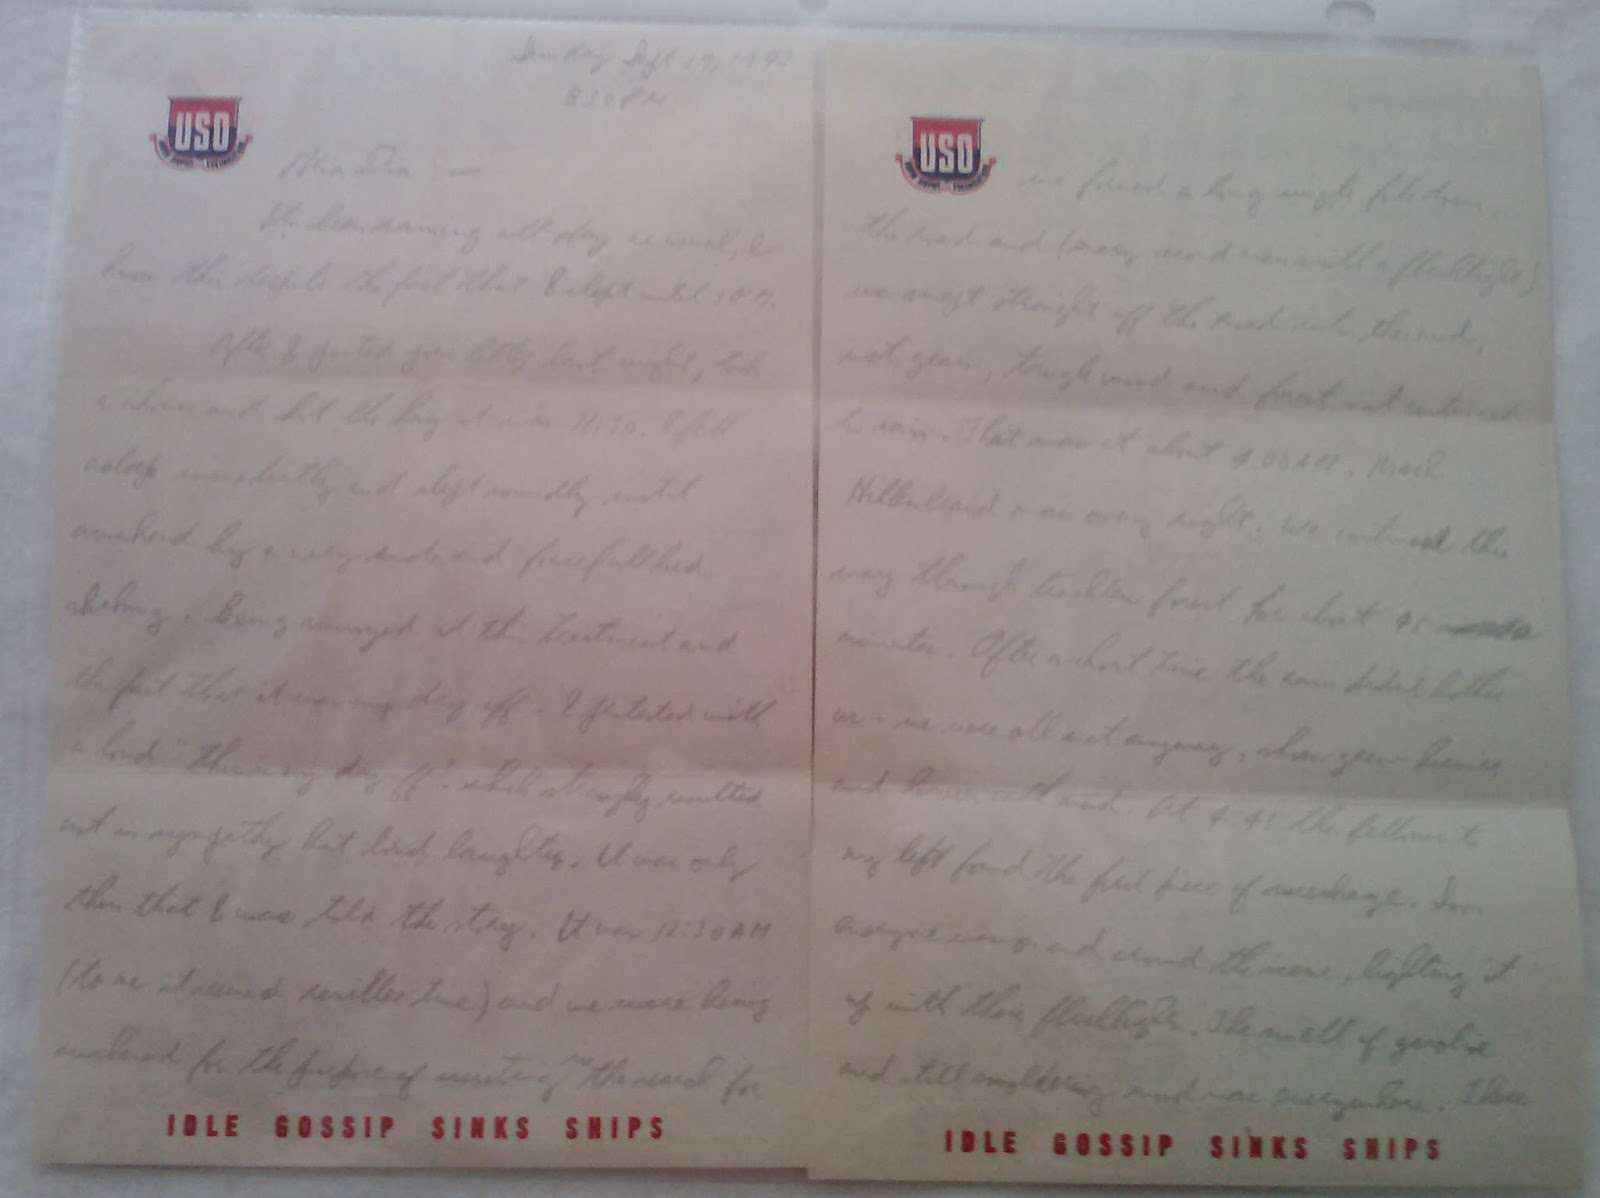 Sunday Sept 19, 1942
830 PM
USO
:—
Its been raining all day as usual, I
know this despite the fact that I slept until 3 PM.
After I posted your letter last night, took
a shower and hit the hay it was 11:30. I fell
asleep immediately and slept soundly until
awakened by a very rude and forcefull bed
shaking. Being annoyed at this treatment and
the fact that it was my day off - I protested with
a loud "this is my day off" which strangely resulted
not in sympathy but loud laughter. It was only
then that I was told the story. It was 12:30 AM
(to me it seemed reveille time) and we were being
awakened for the purpose of assisting in the search for
IDLE GOSSIP SINKS SHIPS
USO
we formed a long single file down
the road and (every second man with a flashlight)
we swept straight off the road into the mud,
wet grass, tough wood and forest and continued
to rain. That was at about 4 00 AM.
and was every right. We continued this
way through trackless forest for about 45
minutes. After a short time the rain didnt bother
us - we were all wet anyway, when
and with mud. At 4 45 the fellow to
my left found the first piece of wreckage. Soon
everyone was around the scene, lighting it
up with their flashlights. The smell of gasoline
and still smoldering wood was everywhere. There
IDLE GOSSIP SINKS SHIPS